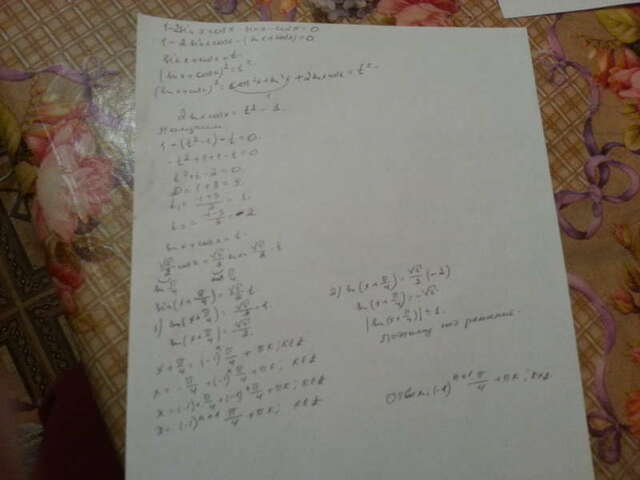 1-2sinxcosx-sinx-cosx=0
1-2sinxcosx-(sinx+cosx)=0
sinx+cosx=t
(sinx+cosx)²=t²
(sinx+cosx)²=cos²x+sin²x+2sinxcosx=t²
1
2sinxcosx=t²-1
Получим
1-(t²-1)-t=0
-t²+1+1-t=0
t²+t-2=0
D=1+8=9
t₁=(-1+3)/2=1
t₂=(-1-3)/2=-2
sinx+cosx=t
√2/2 cosx+√2/2 sinx=√2/2·t
sin(x+π/4)=√2/2·t
1) sin(x+π/4)=√2/2·1
sin(x+π/4)=√2/2
x+π/4=(-1)ᵏπ/4+πk; k∈Z
x=-π/4+(-1)ᵏπ/4+πk; k∈Z
x=(-1)·π/4+(-1)ᵏπ/4+πk; k∈Z
x=(-1)ⁿ⁺¹π/4+πk; k∈Z
2) sin(x+π/4)=√2/2(-2)
sin(x+π/4)=-√2
|sin(x+π/4)|≤1
Поэтому нет решения.
Ответ: (-1)ⁿ⁺¹π/4+πk; k∈Z